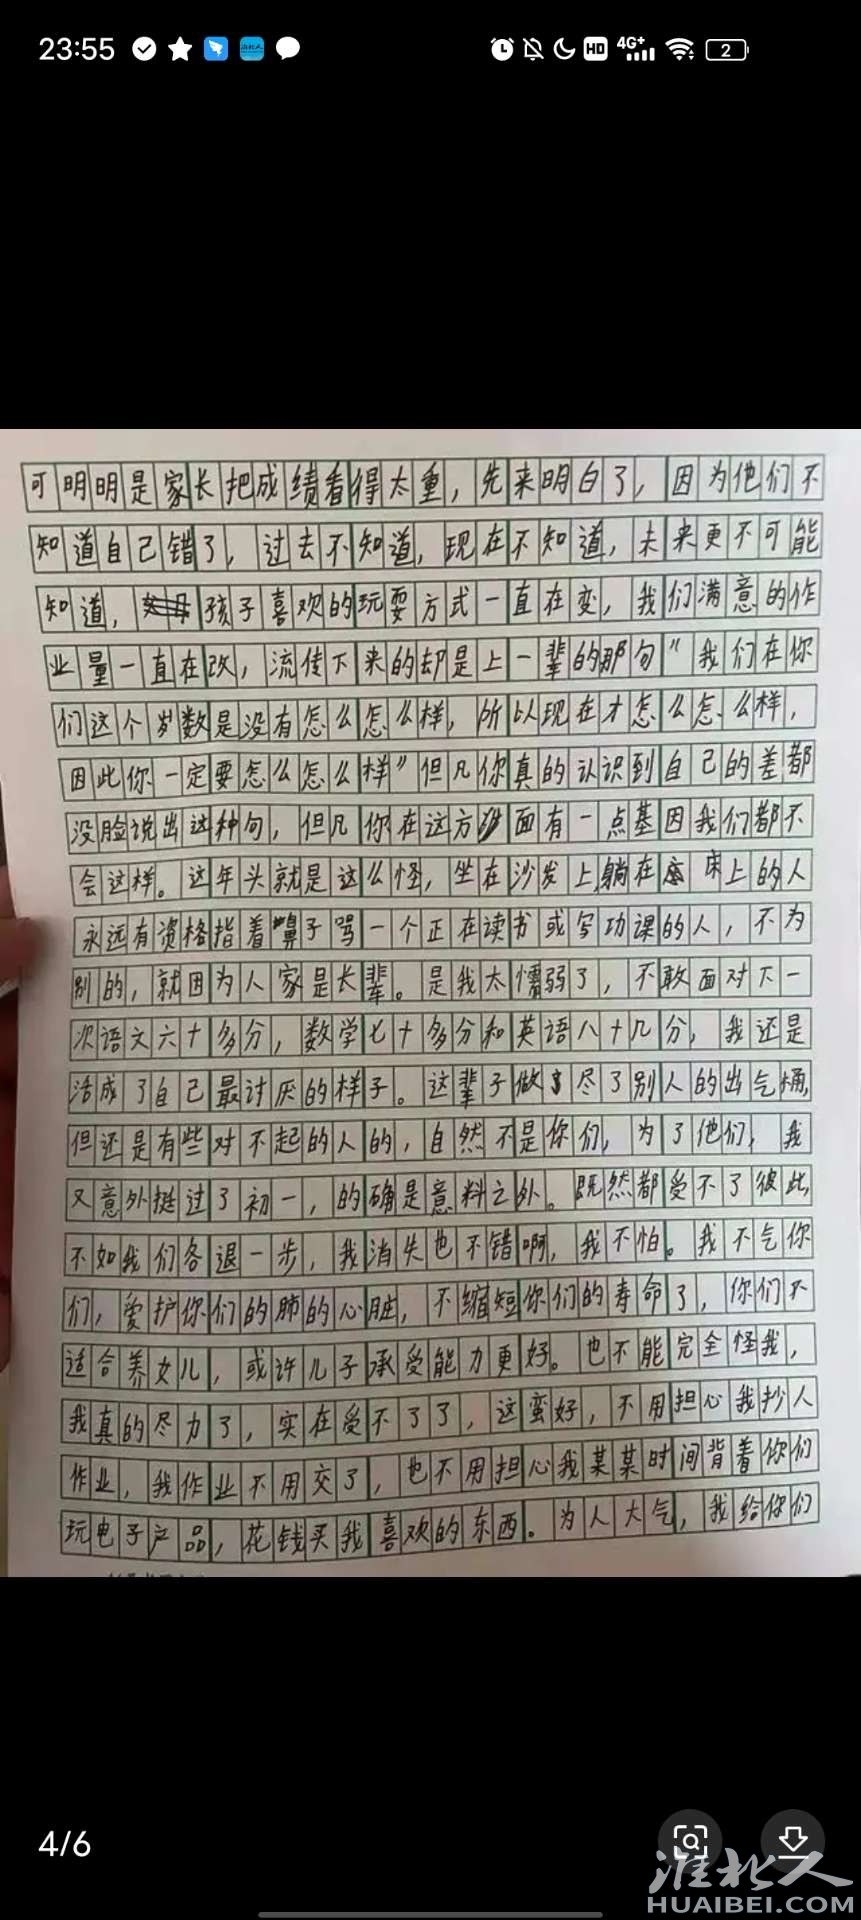 23:55
4G+
HD
2
可明明是家长把成绩看得太重，先来明白了，因为他们不
知道自己错了，过去不知道，现在不知道，未来更不可能
知道，孩子喜欢的玩耍方式一直在变，我们满意的作
业量一直在改，流传下来的却是上一辈的那句“我们在你
们这个岁数是没有怎么怎么样，所以现在才怎么怎么样，
因此你一定要怎么怎么样”但凡你真的认识到自己的差都
没脸说出这种句，但凡你在这方面有一点基因我们都不
会这样。这年头就是这么怪，坐在沙发上躺在床上的人
永远有资格指着鼻子骂一个正在读书或写功课的人，不为
别的，就因为人家是长辈。是我太懦弱了，不敢面对下一
次语文六十多分，数学七十多分和英语八十几分，我还是
活成了自己最讨厌的样子。这辈子做尽了别人的出气桶，
但还是有些对不起的人的，自然不是你们，为了他们，我
又意外挺过了初一，的确是意料之外。既然都受不了彼此，
不如我们各退一步，我消失也不错啊，我不怕。我不气你
们，爱护你们的肺的心脏，不缩短你们的寿命了，你们不
适合养女儿，或许儿子承受能力更好。也不能完全怪我，
我真的尽力了，实在受不了了，这蛮好，不用担心我抄人
作业，我作业不用交了，也不用担心我某某时间背着你们
玩电子产品，花钱买我喜欢的东西。为人大气，我给你们
4/6
淮北人
HUAIBEI.COM